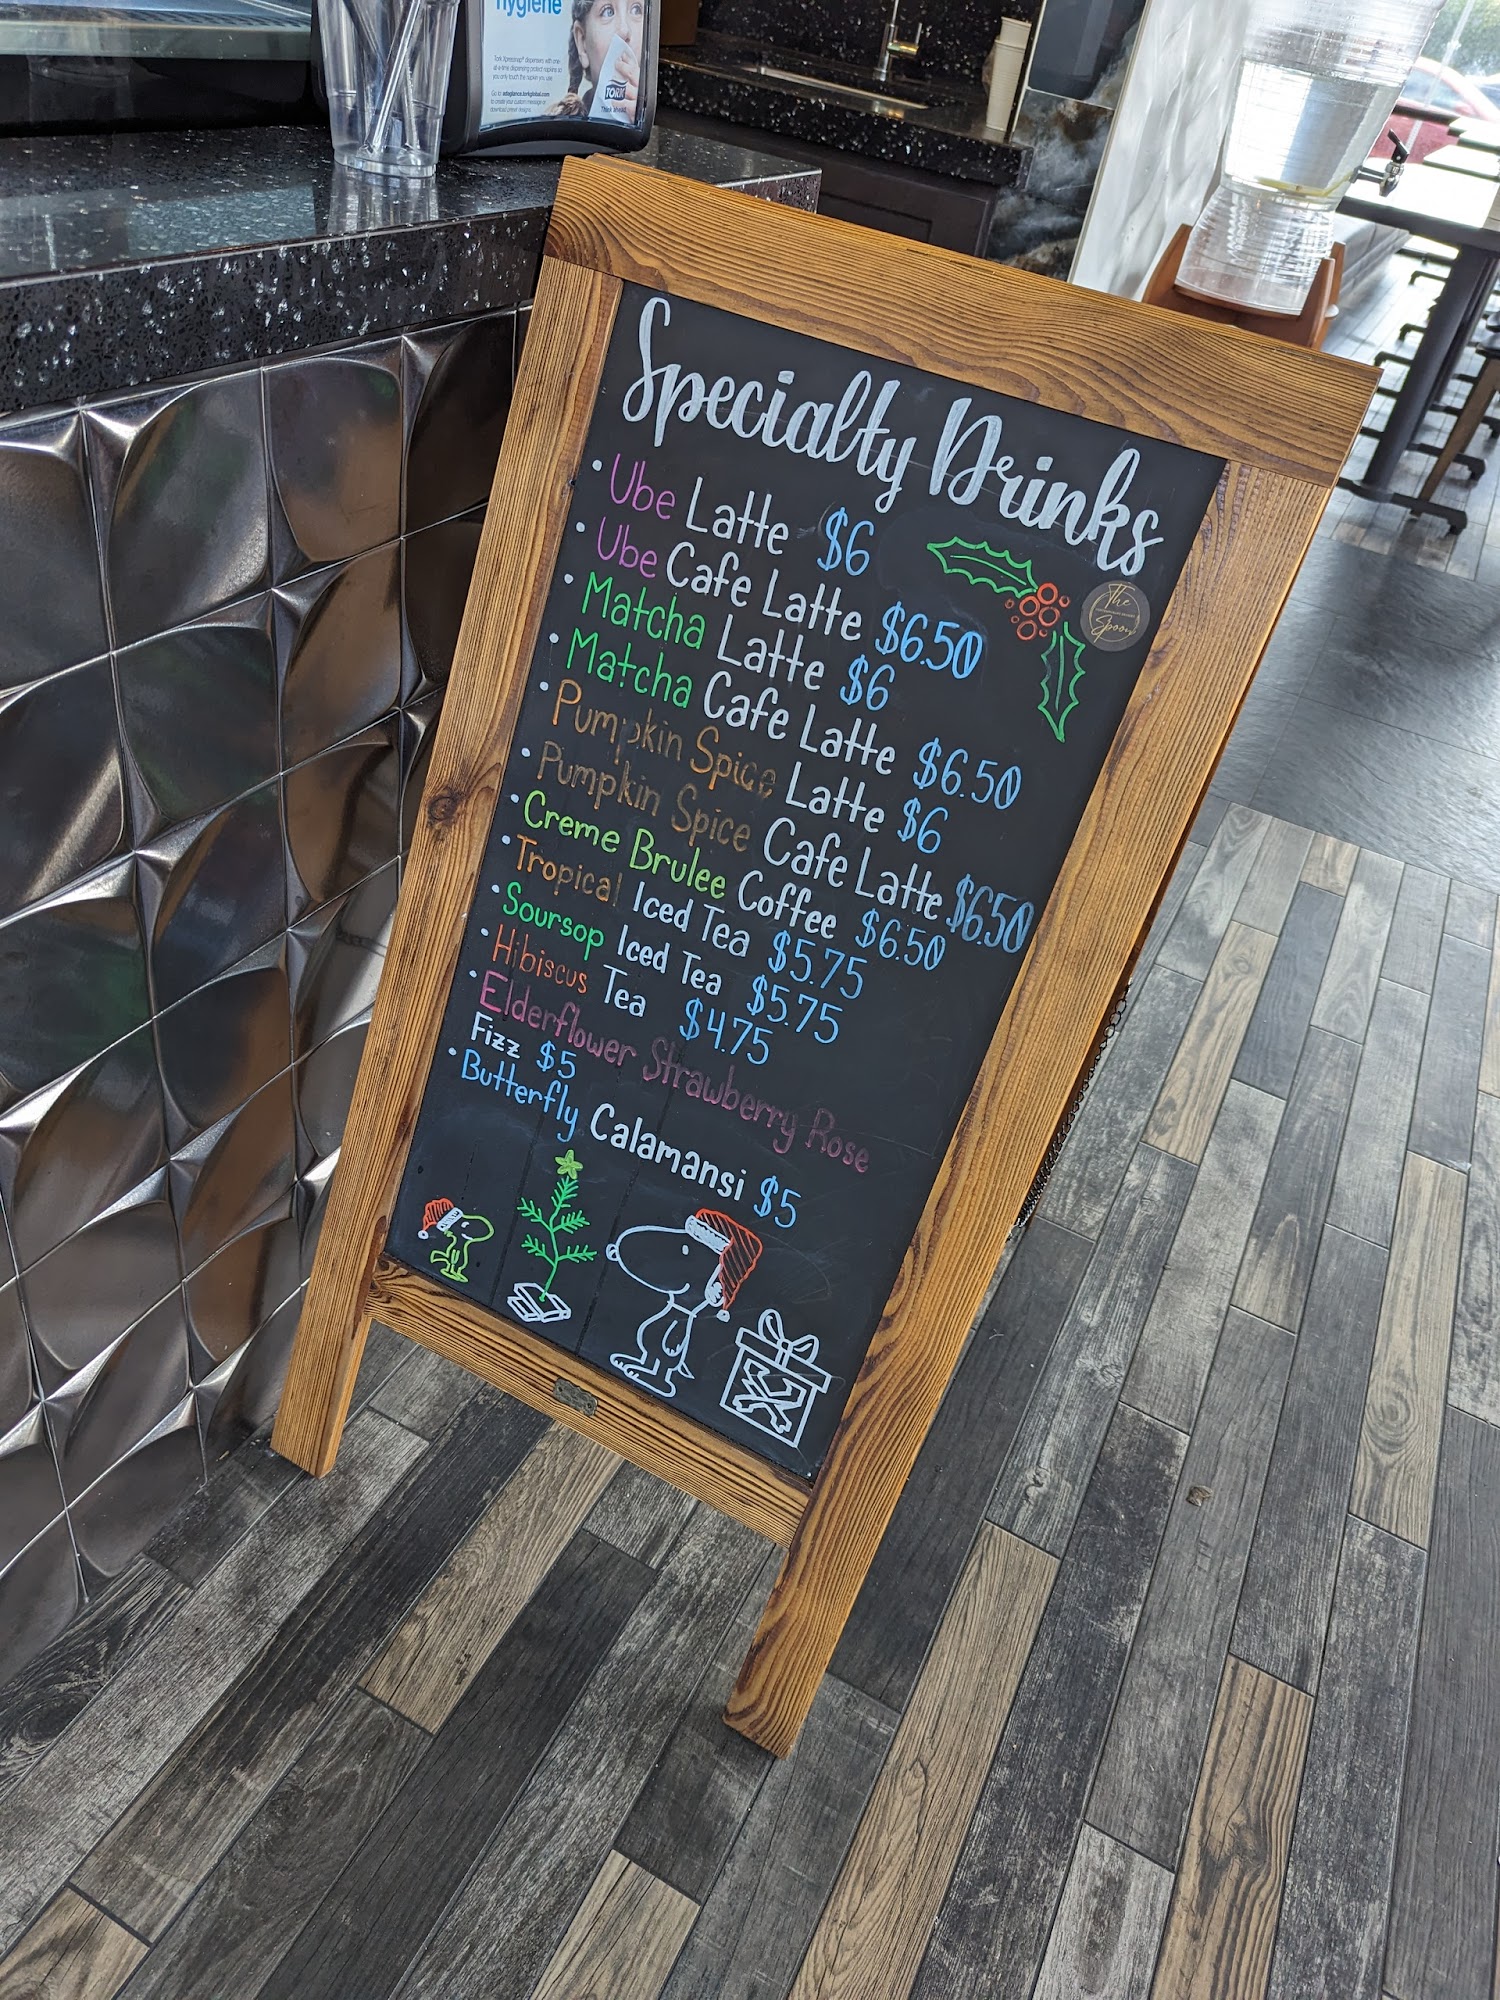 hygiene
Tork Xpressnap® dispensers with one-
at-a-time dispensing protect napkins so
you only touch the napkin you use.
Go to adaglance.torkglobal.com
to create your custom message or
download preset designs.
TORK
Think ahead.
Specialty Drinks
• Ube Latte $6
• Ube Cafe Latte $6.50
• Matcha Latte $6
• Matcha Cafe Latte $6.50
• Pumpkin Spice Latte $6
• Pumpkin Spice Cafe Latte $6.50
• Creme Brulee Coffee $6.50
• Tropical Iced Tea $5.75
• Soursop Iced Tea $5.75
• Hibiscus Tea $4.75
• Elderflower Strawberry Rose
Fizz $5
• Butterfly Calamansi $5
The
Spoon